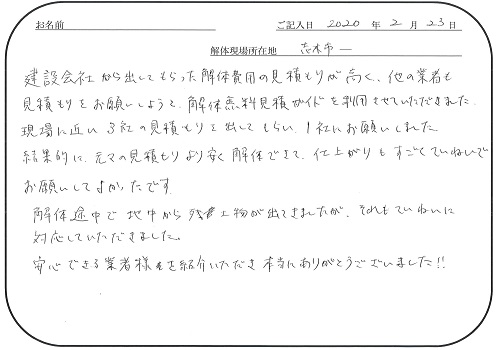 お名前 ご記入日 2020 年 2 月 23 日
解体現場所在地 茨木市 ー
建設会社から出してもらった解体費用の見積もりが高く、他の業者も
見積もりをお願いしようと、解体無料見積ガイドを利用させていただきました。
現場に近い3社の見積もりを出してもらい、1社にお願いしました
結果的に、元々の見積もりより安く解体できて、仕上がりもすごくていねいで
お願いしてよかったです。
解体途中で地中から残土物が出てきましたが、それもていねいに
対応していただきました。
安心できる業者様を紹介いただき本当にありがとうございました!!